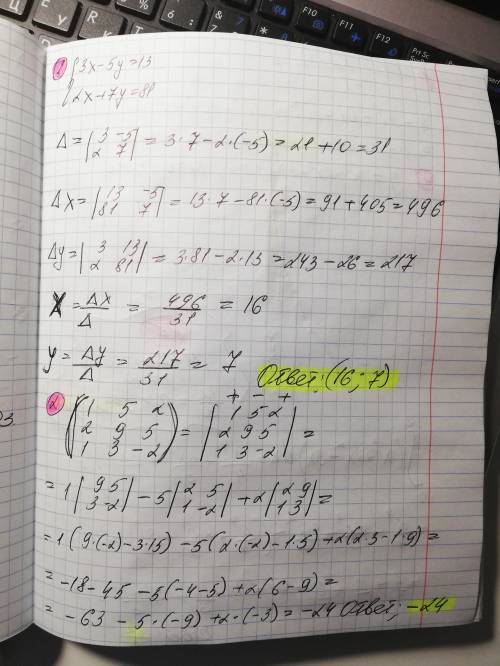 1) {3x-5y=13
{2x+7y=81
Δ = |3 -5; 2 7| = 3·7-2·(-5) = 21+10 = 31
Δx = |13 -5; 81 7| = 13·7-81·(-5) = 91+405 = 496
Δy = |3 13; 2 81| = 3·81-2·13 = 243-26 = 217
X = Δx/Δ = 496/31 = 16
y = Δy/Δ = 217/31 = 7 Ответ: (16; 7)
+ - +
2) (1 5 2; 2 9 5; 1 3 -2) = |1 5 2; 2 9 5; 1 3 -2| =
= 1|9 5; 3 -2| - 5|2 5; 1 -2| + 2|2 9; 1 3| =
= 1(9·(-2)-3·15) - 5(2·(-2)-1·5) + 2(2·3-1·9) =
= -18-45 -5(-4-5) + 2(6-9) =
= -63 - 5·(-9) + 2·(-3) = -24 Ответ: -24